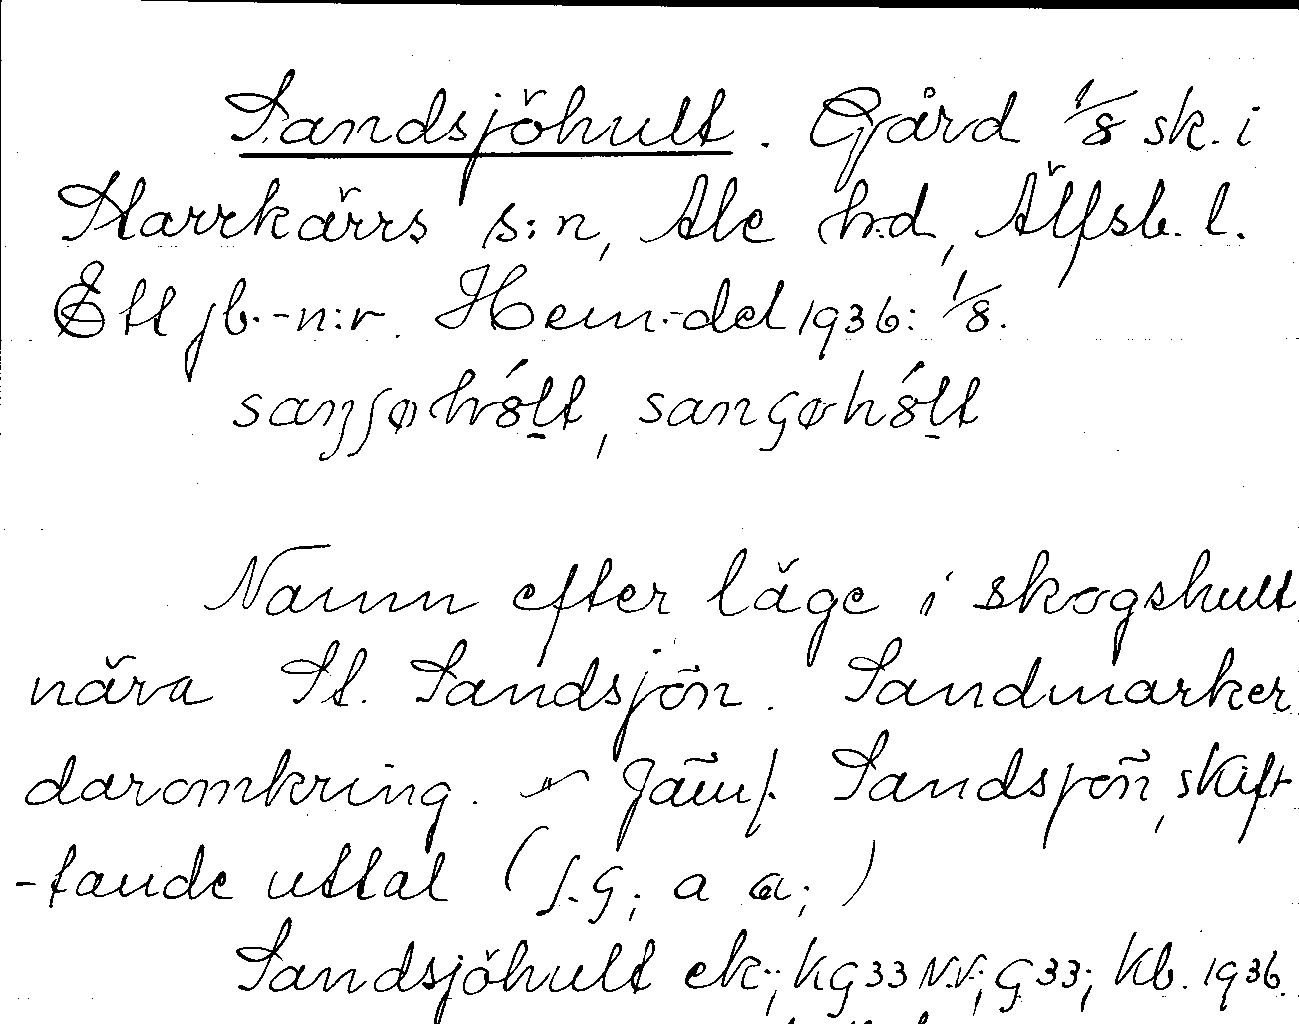 Sandsjöhult. Gård 1/8 sk. i
Starrkärrs s:n, Ale h:d, Älfsb. l.
Ett jb.-n:r. Hem.-del 1936: 1/8.
Namn efter läge i skogshult
nära St. Sandsjön. Sandmarker
daromkring. Jämf. Sandsjön, skift
-tande uttal (ʃ-ç; a ɑ;)
Sandsjöhult ek.; KG33 N.V.; G33; Kb. 1936.